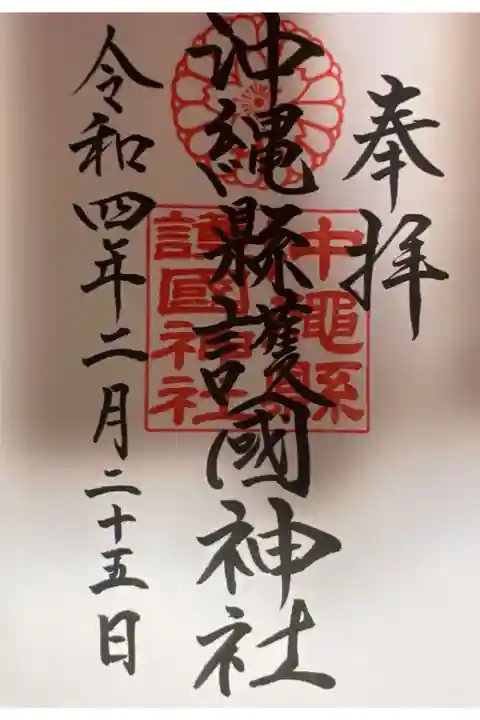 奉拝
沖縄縣護國神社
令和四年二月二十五日
沖縄縣
護國神社